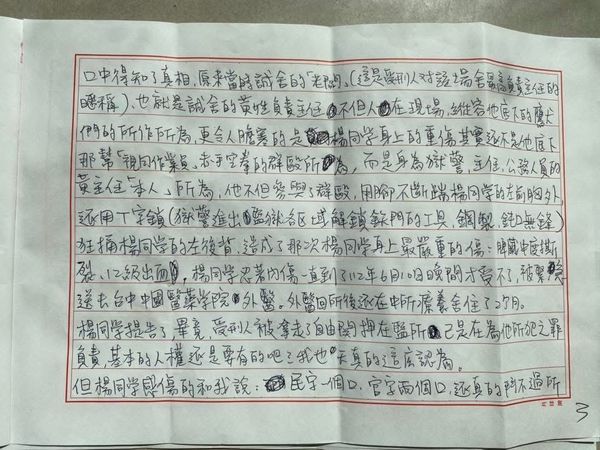 口中得知了真相,原來當時誠舍的「老闆」,(這是受刑人對該場舍最高負責主任的
暱稱),也就是誠舍的黃姓負責主任,不但人在現場,縱容他底下的鷹犬
們的所作所為,更令人膽寒的是楊同學身上的重傷其實還不是他底下
那幫「視同作業員」赤手空拳的群毆所為,而是身為獄警,主任,公務人員的
黃主任「本人」所為,他不但參與了群毆,用腳不斷踹楊同學的左前胸外,
還用丁字鎖(獄警進出監獄各區域解鎖鐵門的工具,鋼製,鈍無鋒)
狂捅楊同學的左後背,造成了那次楊同學身上最嚴重的傷:脾臟中度撕
裂,12級出血,楊同學忍著內傷一直到了112年6月10日晚間才受不了,被緊急
送去台中中國醫藥學院外醫。外醫回所後還在中所療養舍住了2個月。
楊同學提告了,畢竟,受刑人被拿走了自由關押在監所,已是在為他所犯之罪
負責,基本的人權還是要有的吧?我也天真的這麼認為。
但楊同學感傷的和我說:民字一個口,官字兩個口,還真的鬥不過所
3